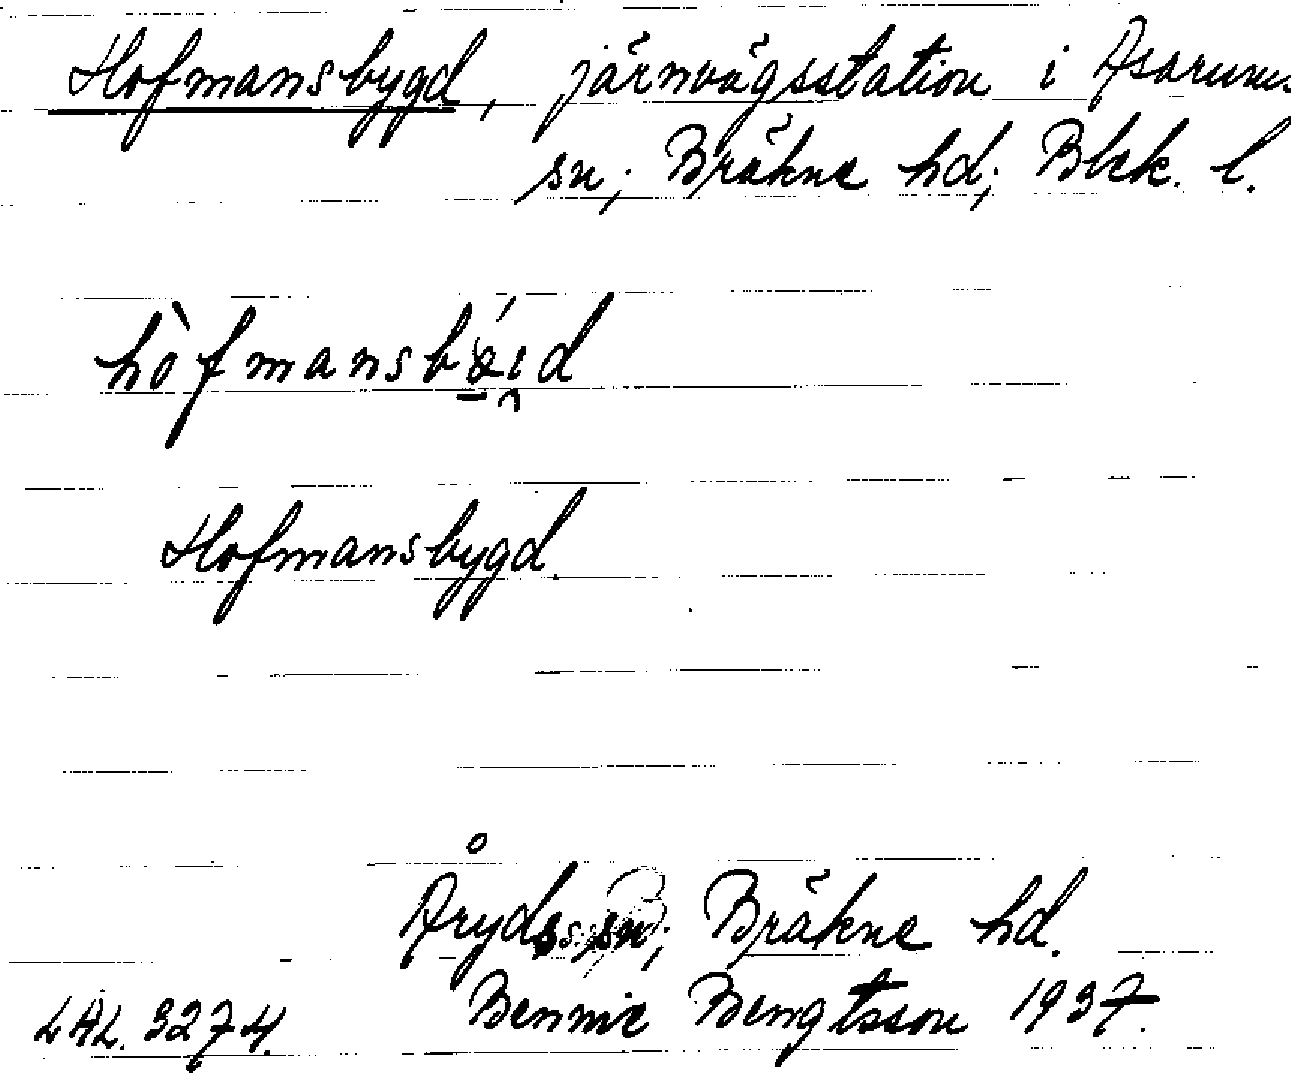 Hofmansbygd, järnvägsstation i Asarums
sn; Bräkne hd; Blek. l.
Hofmansbygd.
Åryds sn; Bräkne hd.
LAL. 3274. Bennie Bengtsson 1937.